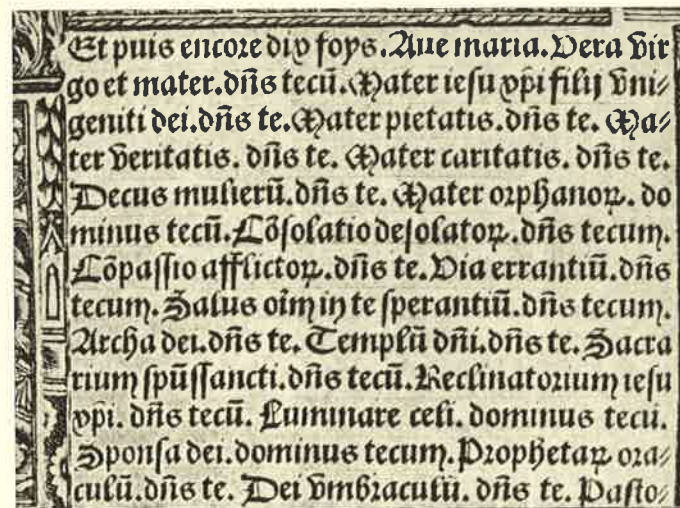 Et puis encore dix foys. Aue maria. Vera vir
go et mater. dñs tecũ. Mater iesu xp̄i filij vni⸗
geniti dei. dñs te. Mater pietatis. dñs te. Ma⸗
ter veritatis. dñs te. Mater caritatis. dñs te.
Decus mulierũ. dñs te. Mater orphanoꝝ. do
minus tecũ. Cõsolatio desolatoꝝ. dñs tecum.
Cõpassio afflictoꝝ. dñs te. Via errantiũ. dñs
tecum. Salus oĩm in te sperantiũ. dñs tecum.
Archa dei. dñs te. Templũ dñi. dñs te. Sacra
rium spũssancti. dñs tecũ. Reclinatorium iesu
xp̄i. dñs tecũ. Luminare celi. dominus tecũ.
Sponsa dei. dominus tecum. Prophetaꝝ ora⸗
culũ. dñs te. Dei vmbraculũ. dñs te. Pasto⸗